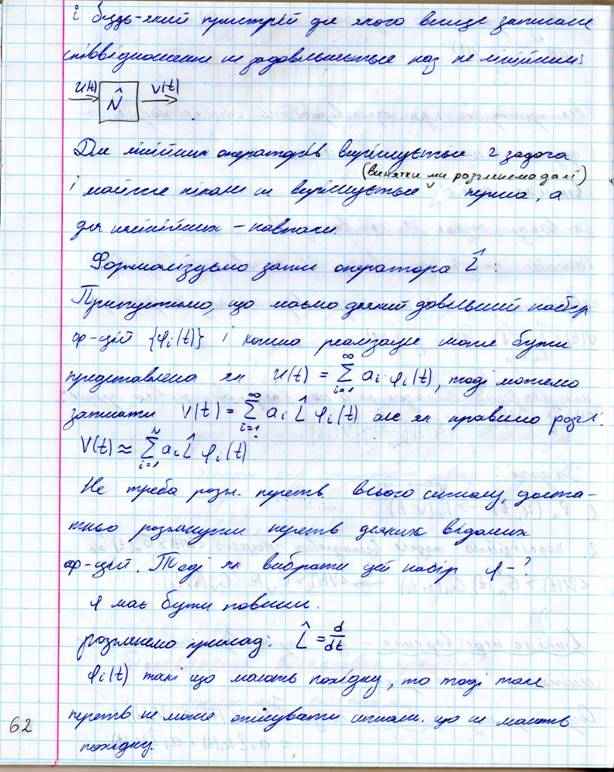 і будь-який пристрій для якого вище записане
співвідношення не задовольняється наз не лінійним:
u(t) N̂ V(t)
Для лінійних операторів вирішується 2 задача
(винятки ми розглянемо далі)
і майже ніколи не вирішується перша, а
для нелінійних – навпаки.
Формалізуємо запис оператора L̂ :
Припустимо, що маємо деякий довільний набір
ф-цій {φi(t)} і кожна реалізація може бути
представлена як u(t) = ∑_{i=1}^{∞} ai φi(t), тоді можемо
записати V(t) = ∑_{i=1}^{∞} ai L̂ φi(t) але як правило розгл.
V(t) ≈ ∑_{i=1}^{N} ai L̂ φi(t)
Не треба розгл. перетв. всього сигналу, доста-
тньо розглянути перетв деяких відомих
ф-цій. Тоді як вибрати цей набір φ-?
φ має бути повним.
розглянемо приклад: L̂ = d/dt
φi(t) такі що мають похідну, то тоді таке
перетв не може описувати сигнали. що не мають
похідну.
62